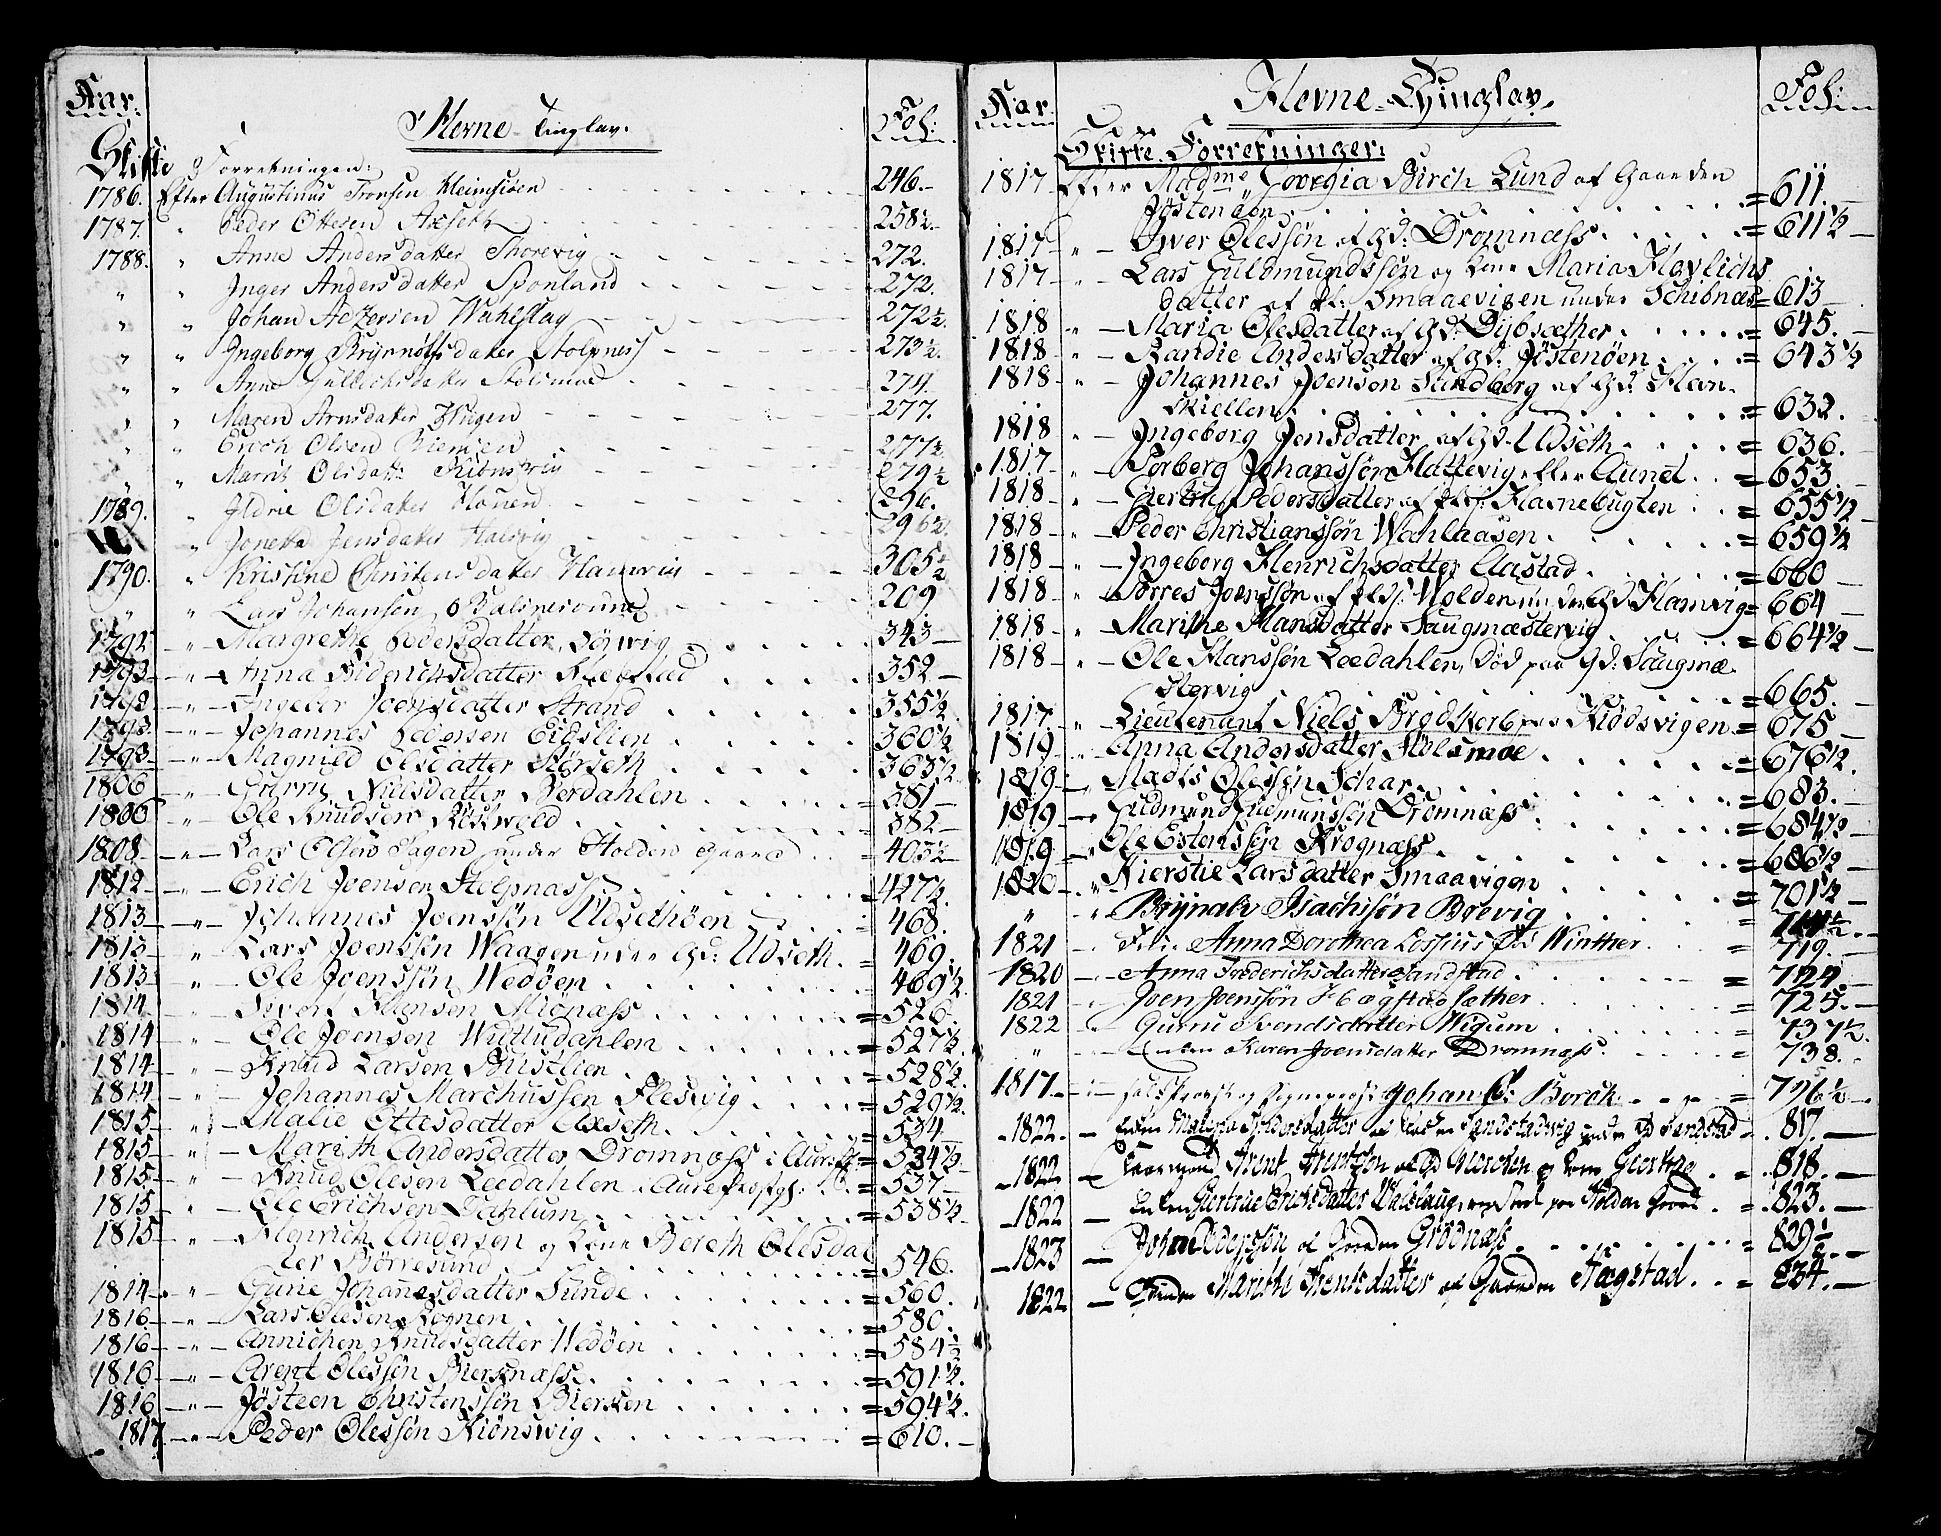 Aar. Herne Tinglav. Fol:
Skifte Forretningen:
1786. Efter Augustinus Tronsen Heimsiöen 246.
1787. " Peder Ottesen Axseth 258½.
1788. " Anne Andersdatter Thorevig 272.
" " Inger Andersdatter 272.
" " Johan Wahlslag 272½.
" " Ingeborg Brynnolfsdatter Stolpness 273½.
" " Anne Gulbichsdatter 274.
" " Maren Arnsdatter 277.
" " Erich Olsen 277½
" " Marrit Olsdattr 279½
1789. " Ildrie Olsdatter 296.
" Joneta Jensdatter 296½.
1790. " Kristine Christensdatter Hamvig 305½
" " Lars Johansen 209
1792 " Margrethe Pedersdatter 343
1793 " Anna Diderichsdatter 352
1793 " Ingebor Joensdatter Strand 355½
1793. " Johannes Pedersen Eidslien 360½
1793 " Magnild Olesdatter 363½
1806 " Nielsdatter Berdahlen 381
1806 " Ole Knudsen 382
1808 " Lars Olsen Hagen under Holden Gaard 403½
1812 " Erich Joensen Stolpnass 427½
1813 " Johannes Joenssön Udsethöen 468.
1813 " Lars Joenssön Waagen under Gd: Udseth 469.
1813 " Ole Joenssön Wedöen 469½
1814 " Sivert Hansen Miönæss 526.
1814 " Ole Joensen Wuttudahlen 527½
1814 " Knud Larsen Bustlien 528½
1814 " Johannes Marchussen Hesvig 529½
1815 " Malie Ottesdatter Axseth 534
1815 " Marith Andersdatter Dromnæss i Aure 534½
1815 " Knud Olesen Leedahlen i Aure Præstgl: 537
1815 " Ole Erichsen Tahlum 538½
1815 " Henrich Andersen og Kone Bereth Olesdat
ter Börresund 546.
1814 " Gurie Johannesdatter Sunde 560.
1816 " Lars Olesen 580.
1816 " Annichen Knudsdatter Wedöen 584½
1816 " Arent Olessön Biersnæss 591½
1816 " Jösteen Christenssön 594½
1817 " Peder Olessön Kiönswig 610.
Aar. Hevne Thinglav. Fol:
Skifte Forretninger:
1817 Efter Madme Georgia Birch Lund af Gaarden
Jöstenöen 611.
1817 " Iwer Olessön af Gd: Dromnæss 611½
1817 " Lars Guldmundssön og Kone Maria
datter af Pl: Smaaevigen under Schibnæs 613
1818 " Maria Olesdatter af Gd: Dybsæther 645.
1818 " Randie Andersdatter af Gd: Jöstenöen 643½
1818 " Johannes Joensen Sundberg af Gd:
skiellen 632.
1818 " Ingeborg Jensdatter af Gd. Udseth 636.
1817 " Torberg Johanssön Hattevig efter Aunet 653.
1818 " Giertrud Pedersdatter af Havnebugten 655½
1818 " Peder Christianssön Wahlaasen 659½
1818 " Ingeborg Henrichsdatter Aastad 660
1818 " Torres Joenssön af Plds: Wolden under Gd: Hamvig 664
1818 " Marithe Hansdatter Saugmæstervig 664½
1818 " Ole Hanssön Leedahlen, död paa Gd: Saugmæ
stervig 665.
1817. " Lieutenant Niels Brodskorb paa Kiödsvigen 675
1819 " Anna Andersdatter Stölsmoe 676½
1819 " Madts Olessön Schar 683.
1819 " Gudmund Gudmunssön Dromnæss 684½
1819 " Ole Estenssön Krognæss 686½
1820 " Kierstie Larsdatter Smaavigen 701½
" " Brynalv Isachssön Brevig 711½
1821 Anna Dorothea Winther 719.
1820 " Anna Frederichsdatter Sandstad 724.
1821 " Joen Joenssön Hægstadsæther 725.
1822 " Guruu Svendsdatter Wigum 737½
" " Enken Karen Joensdatter Dromnæss 738.
1817. Johan C: Borch 796½
1822. Enken Pedersdatter Sandstadvig under Gd Sandstad 817.
1822 Arent Arentzön af Gd og Kone 818.
1822 Enken Gertrue Erichsdatter paa Holden Gaard 823.
1823 af Gaarden Grödnæss 829½
1822 Enken Marithe Arentsdatter af Gaarden Hægstad 834.